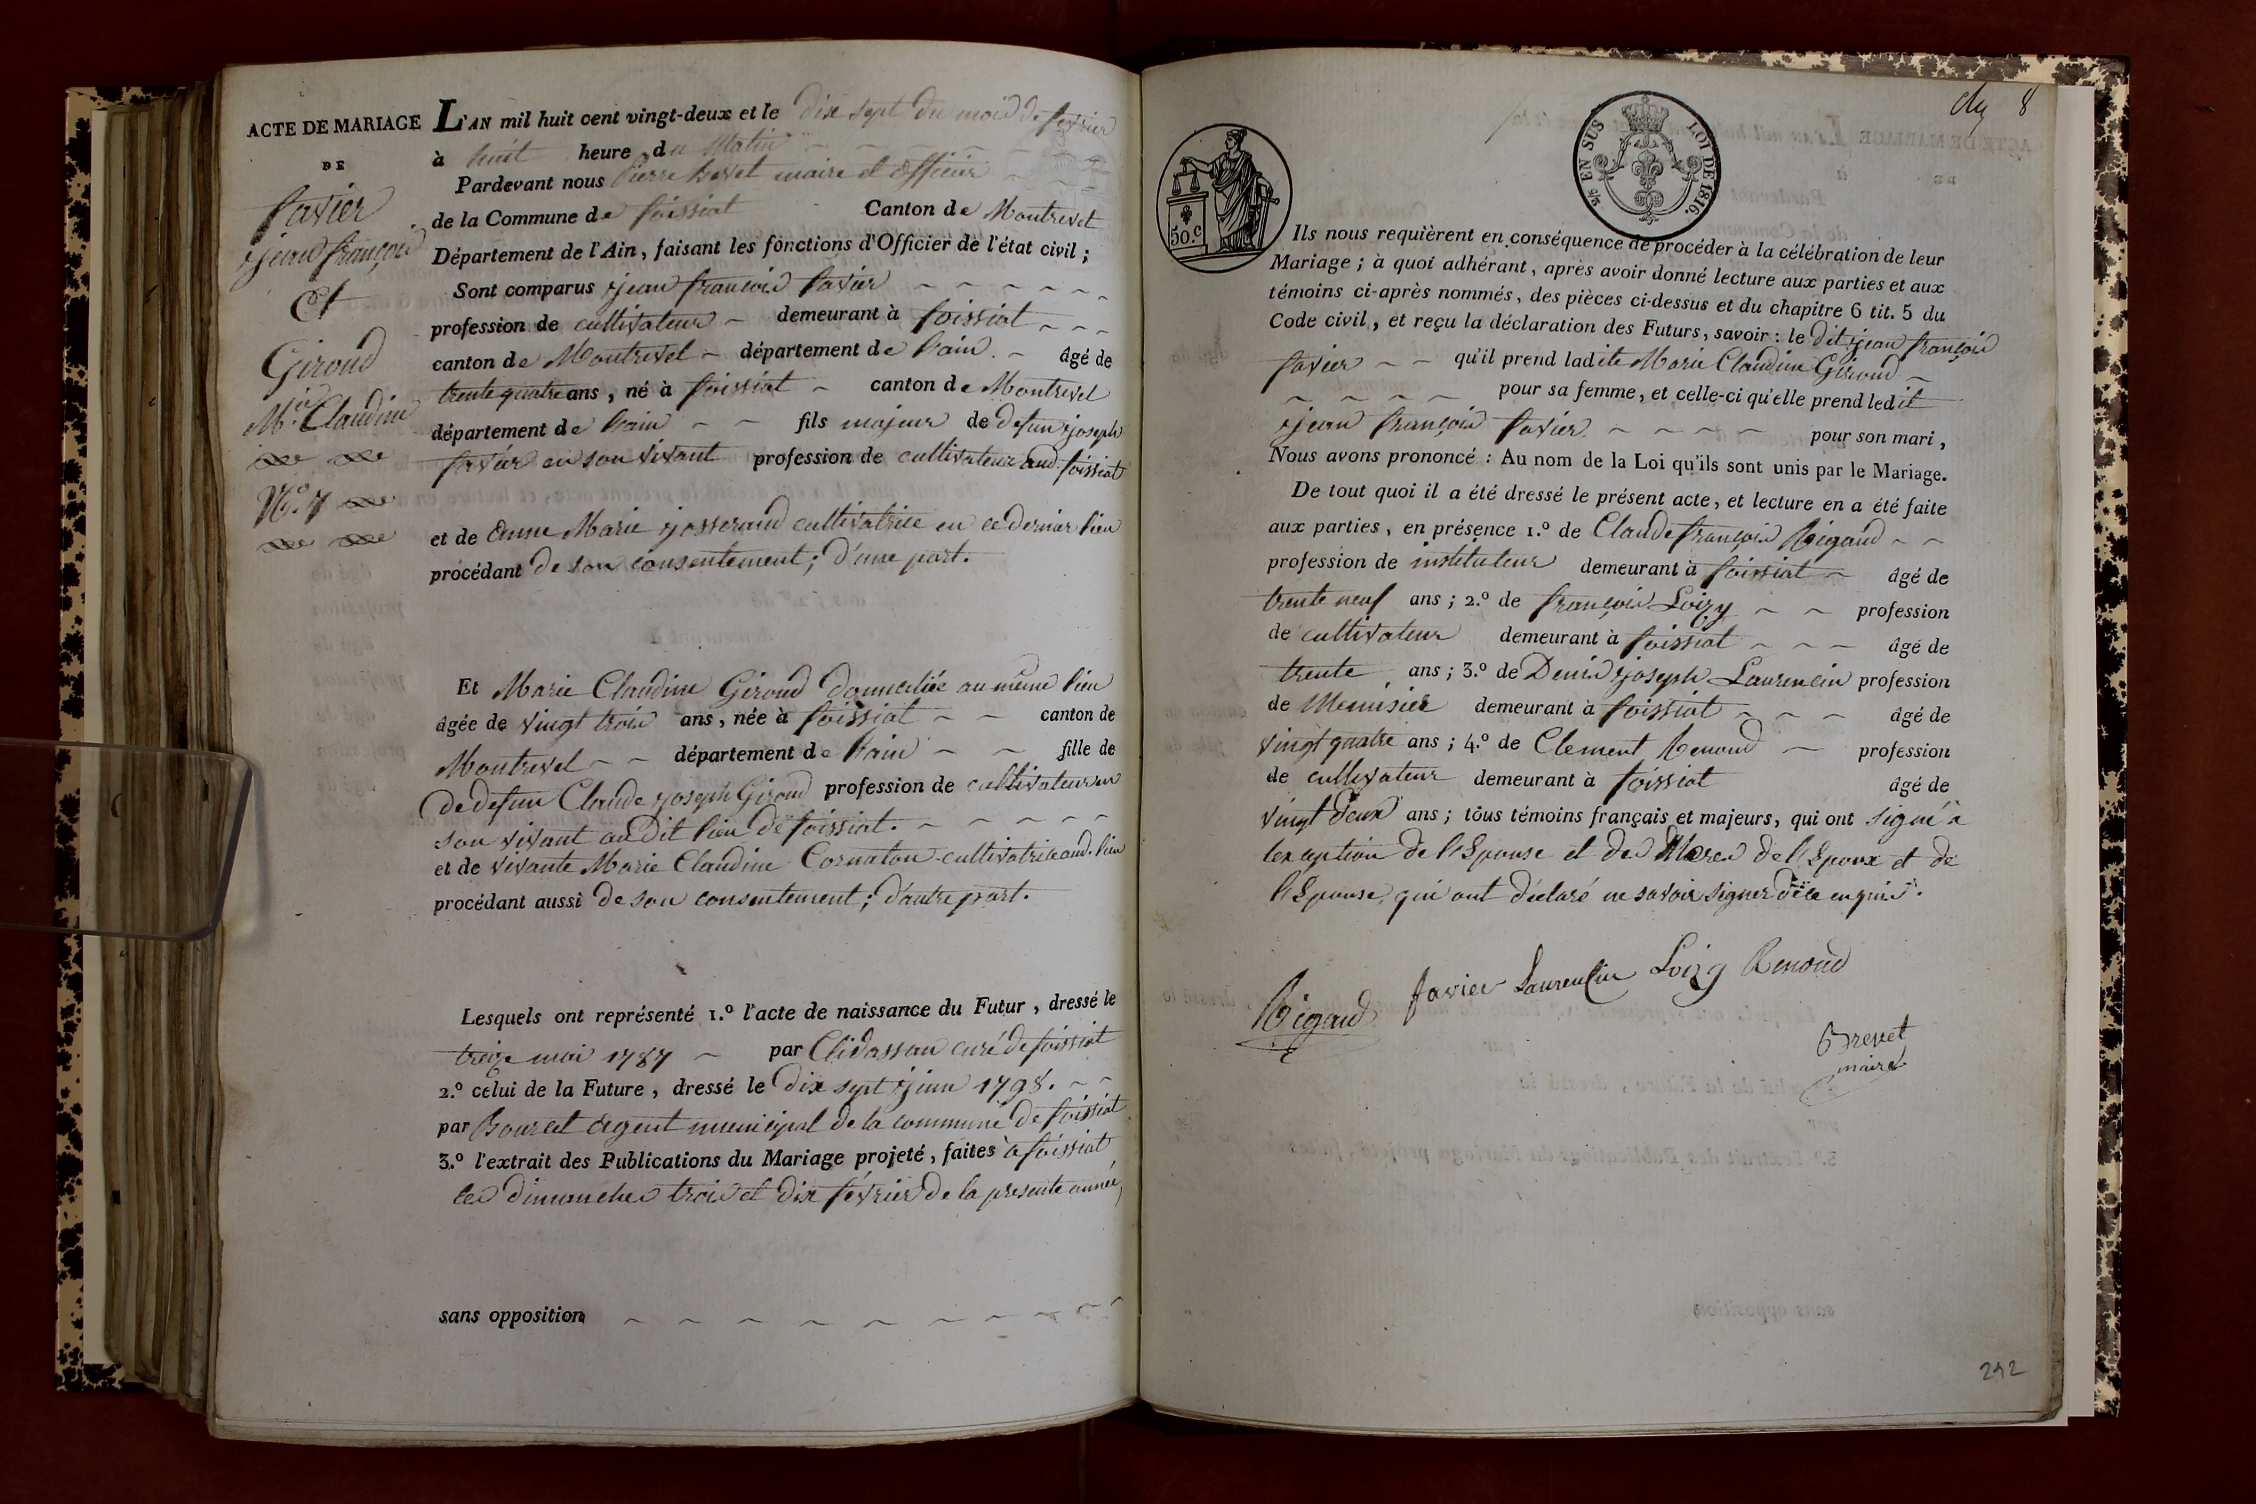 ACTE DE MARIAGE
DE
favier
jean françois
Et
Giroud
M.ie Claudine
N.o 7
L'AN mil huit cent vingt-deux et le dix sept du mois de fevrier
à huit heure du Matin
Pardevant nous Pierre Brevet maire et officier
de la Commune de foissiat Canton de Montrevel
Département de l'Ain, faisant les fonctions d'Officier de l'état civil ;
Sont comparus jean francois favier
profession de cultivateur demeurant à foissiat
canton de Montrevel département de l'ain âgé de
trente quatre ans, né à foissiat canton de Montrevel
département de l'ain fils majeur de defun joseph
favier en son vivant profession de cultivateur aud. foissiat
et de Anne Marie josserand cultivatrice en ce dernier lieu
procédant de son consentement ; d'une part.
Et Marie Claudine Giroud domiciliée au même lieu
âgée de vingt trois ans, née à foissiat canton de
Montrevel département de l'ain fille de
de defun Claude joseph Giroud profession de cultivateur en
son vivant au dit lieu de foissiat.
et de vivante Marie Claudine Cornaton cultivatrice aud. lieu
procédant aussi de son consentement ; d'autre part.
Lesquels ont représenté 1.o l'acte de naissance du Futur, dressé le
treize mai 1787 par curé de foissiat
2.o celui de la Future, dressé le dix sept juin 1798.
par Bourcet Agent municipal de la commune de foissiat
3.o l'extrait des Publications du Mariage projeté, faites à foissiat
les dimanches trois et dix février de la presente année,
sans opposition
8
50.c
EN SUS
LOI DE 1816.
Ils nous requièrent en conséquence de procéder à la célébration de leur
Mariage ; à quoi adhérant, après avoir donné lecture aux parties et aux
témoins ci-après nommés, des pièces ci-dessus et du chapitre 6 tit. 5 du
Code civil, et reçu la déclaration des Futurs, savoir : le dit jean françois
favier qu'il prend ladite Marie Claudine Giroud
pour sa femme, et celle-ci qu'elle prend ledit
jean françois favier pour son mari,
Nous avons prononcé : Au nom de la Loi qu'ils sont unis par le Mariage.
De tout quoi il a été dressé le présent acte, et lecture en a été faite
aux parties, en présence 1.o de Claude françois Rigaud
profession de instituteur demeurant à foissiat âgé de
trente neuf ans ; 2.o de françois Loizy profession
de cultivateur demeurant à foissiat âgé de
trente ans ; 3.o de Denis joseph Laurencin profession
de Menuisier demeurant à foissiat âgé de
vingt quatre ans ; 4.o de Clement Renoud profession
de cultivateur demeurant à foissiat âgé de
vingt deux ans ; tous témoins français et majeurs, qui ont signé à
lexception de l'Epouse et des Meres de l'Epoux et de
l'Epouse, qui ont déclaré ne savoir signer de ce enquis.
Rigaud favier Laurencin Loizy Renoud
Brevet
maire
292